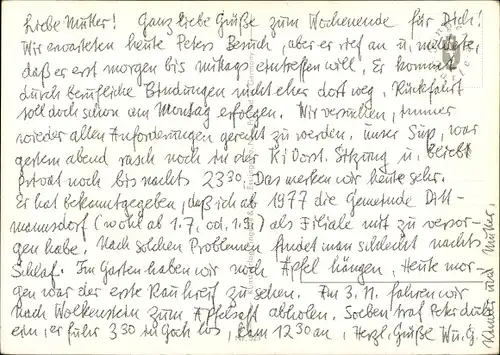 Liebe Mutter! Ganz liebe Grüße zum Wochenende für Dich!
Wir erwarteten heute Peters Besuch, aber er rief an u. meldete,
daß er erst morgen bis mittags eintreffen will, Er kommt
durch berufliche Bindungen nicht eher dort weg, Rückfahrt
soll doch schon am Montag erfolgen. Wir versuchen, immer
wieder allen Anforderungen gerecht zu werden. Unser Sup. war
gestern abend rasch noch in der KiVorst. Sitzung u. bleibt
privat noch bis nachts 23³⁰. Das merken wir heute sehr.
Er hat bekanntgegeben, daß ich ab 1977 die Gemeinde Ditt-
mannsdorf (wohl ab 1.7. od. 1.9.) als Filiale mit zu versor-
gen habe. Nach solchen Problemen findet man schlecht nachts
Schlaf. Im Garten haben wir noch Äpfel hängen, Heute mor-
gen war der erste Rauhreif zu sehen. Am 3.11. fahren wir
nach Wolkenstein zum Apfelsaft abholen. Soeben traf Peter
ein, er fuhr 3³⁰ in los, kam 12³⁰ an, Herzl. Grüße Wu. G.
Kinder und Mutter.